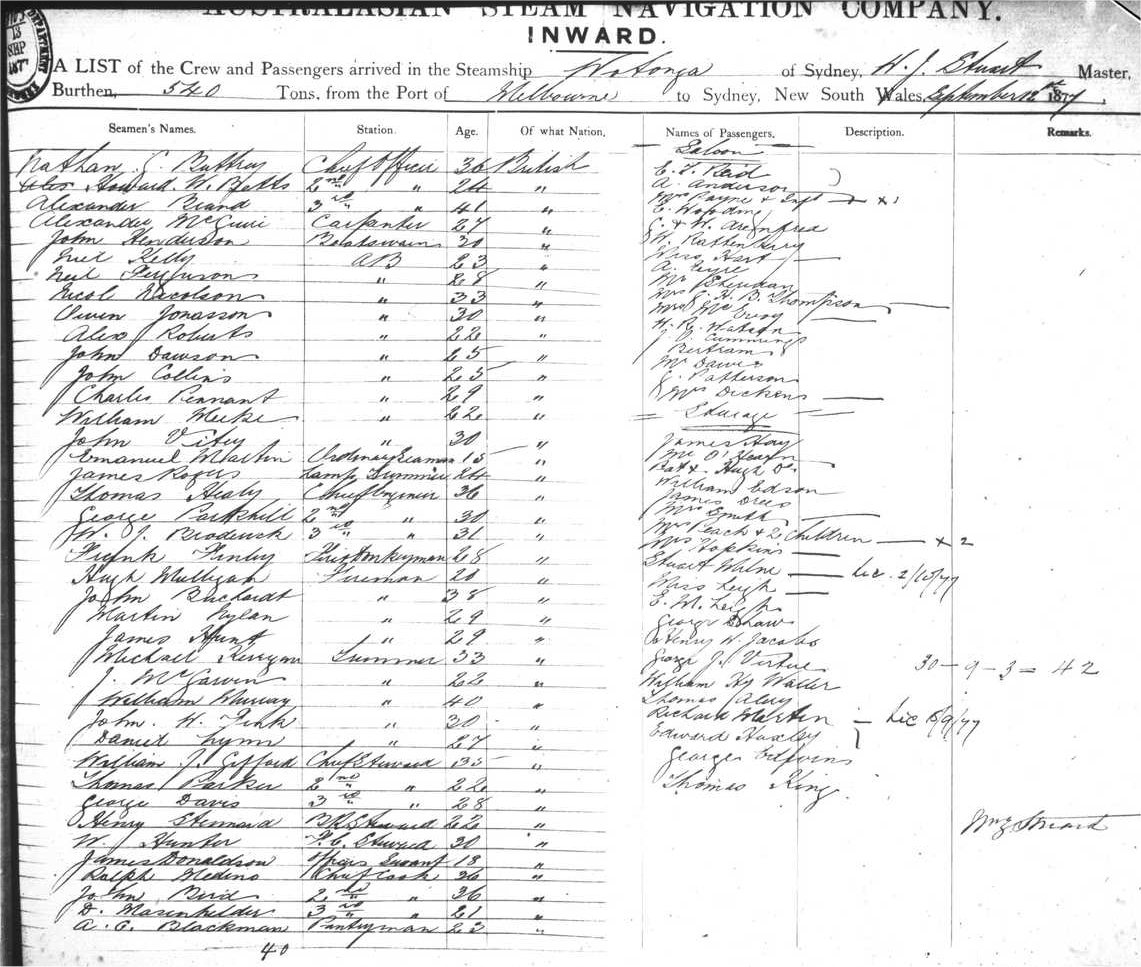 AUSTRALASIAN STEAM NAVIGATION COMPANY.
INWARD.
A LIST of the Crew and Passengers arrived in the Steamship Wotonga of Sydney, W. J. Stuart Master,
Burthen, 540 Tons, from the Port of Melbourne to Sydney, New South Wales, September 12th 1877.
Seamen's Names. Station. Age. Of what Nation. Names of Passengers. Description. Remarks.
Nathan Buttrey Chief Officer 36 British
Howard W. Betts 2nd " 24 "
Alexander Brand 3rd " 41 "
Alexander McGuire Carpenter 27 "
John Henderson Boatswain 30 "
Neil Kelly AB 23 "
Neil Ferguson " 28 "
Nicol Nicolson " 33 "
Owen Jonasson " 30 "
Alex Roberts " 22 "
John Dawson " 25 "
John Collins " 25 "
Charles Pennant " 29 "
William Meeke " 22 "
John " 30 "
Emanuel Martin Ordinary Seaman 15 "
James Rogers Lamp Trimmer 24 "
Thomas Healy Chief Engineer 36 "
George Parkhill 2nd " 30 "
W. J. Broderick 3rd " 31 "
Frank Finley First Donkeyman 28 "
Hugh Mulligan Fireman 20 "
John Bachardt " 38 "
Martin Nylan " 29 "
James Hunt " 29 "
Michael Kerrigan Trimmer 33 "
J. McGarvin " 22 "
William Murray " 40 "
John. W. Fink " 30 "
Daniel Lynn " 27 "
William J. Gifford Chief Steward 35 "
Thomas Parker 2nd " 22 "
George Davis 3rd " 28 "
Henry Stennard BR Steward 22 "
W. Hunter F. C. Steward 30 "
James Donaldson Officers Servant 18 "
Ralph Medino Chief Cook 26 "
John Bird 2nd " 36 "
D. 3rd " 21 "
A. C. Blackman Pantryman 23 "
40
Saloon
E. T. Reid
A. Anderson
Mrs Payne & Inft x 1
E. Wooding
C. & W.
W. Rattenberry
Miss Hart
A. Eyre
Mr Sheridan
Mrs H. B. Thompson
Mrs McEvoy
H. R. Watson
J. V. Cummings
Bertram
Mr Dawes
C. Patterson
Mrs Dickens
Steerage
James Hay
Mr O'Hearn
Pat & Hugh Do
William Edson
James Drees
Mrs Smith
Mrs Peach & 2 Children x 2
Mrs Hopkins
Stuart Milne Lic. 2/10/77
Miss Leigh
E. M. Leigh
George Shaw
Henry W. Jacobs
George J. Virtue 30 - 9 - 3 = 42
William Hy Waller
Thomas
Richard Martin Lic 15/9/77
Edward Huxley
George
Thomas King